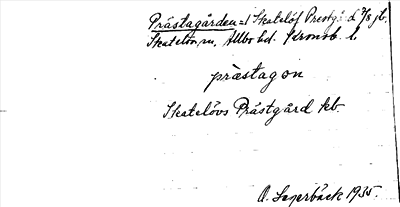 Prästagården = 1 Skatelöf Prestgård 7/8 jb.
Skatelöv sn, Allbo hd. Kronob. l.
prästagon
Skatelövs Prästgård kb.
O. Lagerbäck 1935.